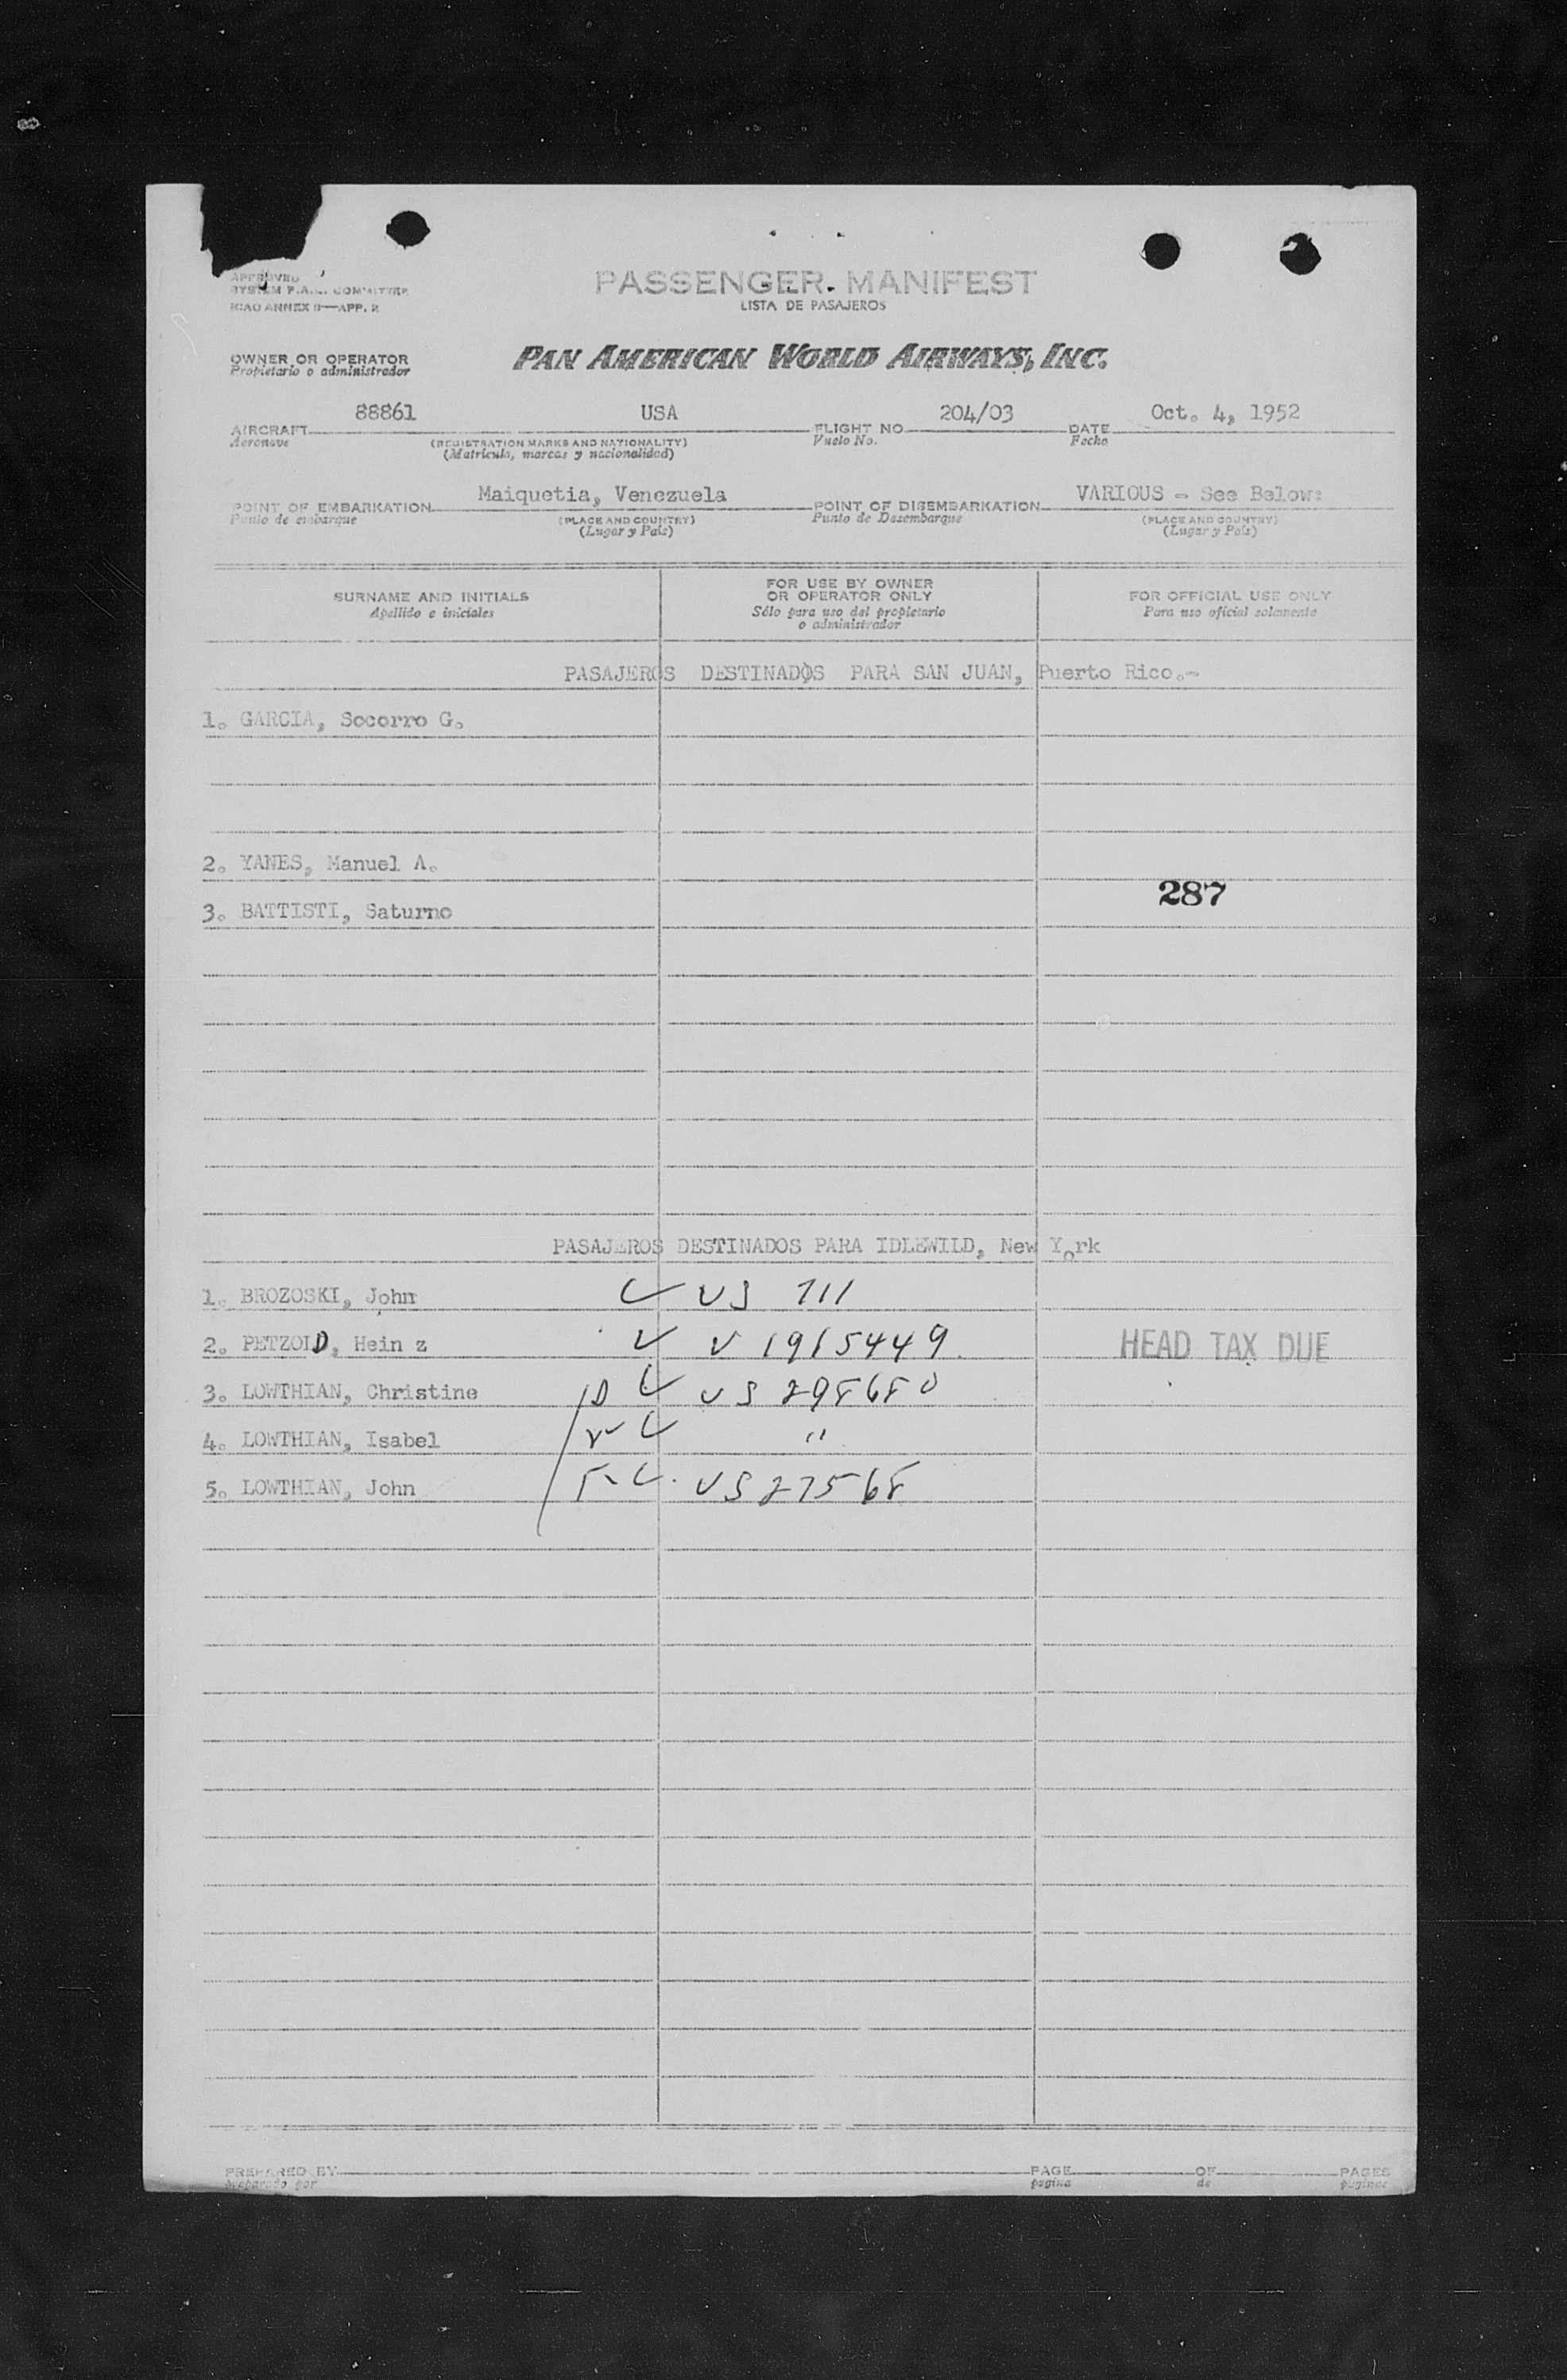 APPROVED
SYSTEM F.A.L. COMMITTEE
ICAO ANNEX 9—APP. 2
PASSENGER MANIFEST
LISTA DE PASAJEROS
OWNER OR OPERATOR
Propietario o administrador
PAN AMERICAN WORLD AIRWAYS, INC.
88861 USA 204/03 Oct. 4, 1952
AIRCRAFT FLIGHT NO. DATE
Aeronave (REGISTRATION MARKS AND NATIONALITY) Vuelo No. Fecha
(Matrícula, marcas y nacionalidad)
Maiquetia, Venezuela VARIOUS - See Below:
POINT OF EMBARKATION POINT OF DISEMBARKATION
Punto de embarque (PLACE AND COUNTRY) Punto de Desembarque (PLACE AND COUNTRY)
(Lugar y País) (Lugar y País)
SURNAME AND INITIALS
Apellido e iniciales
FOR USE BY OWNER
OR OPERATOR ONLY
Sólo para uso del propietario
o administrador
FOR OFFICIAL USE ONLY
Para uso oficial solamente
PASAJEROS DESTINADOS PARA SAN JUAN, Puerto Rico.-
1. GARCIA, Socorro G.
2. YANES, Manuel A.
287
3. BATTISTI, Saturno
PASAJEROS DESTINADOS PARA IDLEWILD, New York
1. BROZOSKI, John US 711
2. PETZOLD, Hein z V 1915449 HEAD TAX DUE
3. LOWTHIAN, Christine US 298680
4. LOWTHIAN, Isabel "
5. LOWTHIAN, John US 27568
PREPARED BY PAGE OF PAGES
preparado por página de páginas